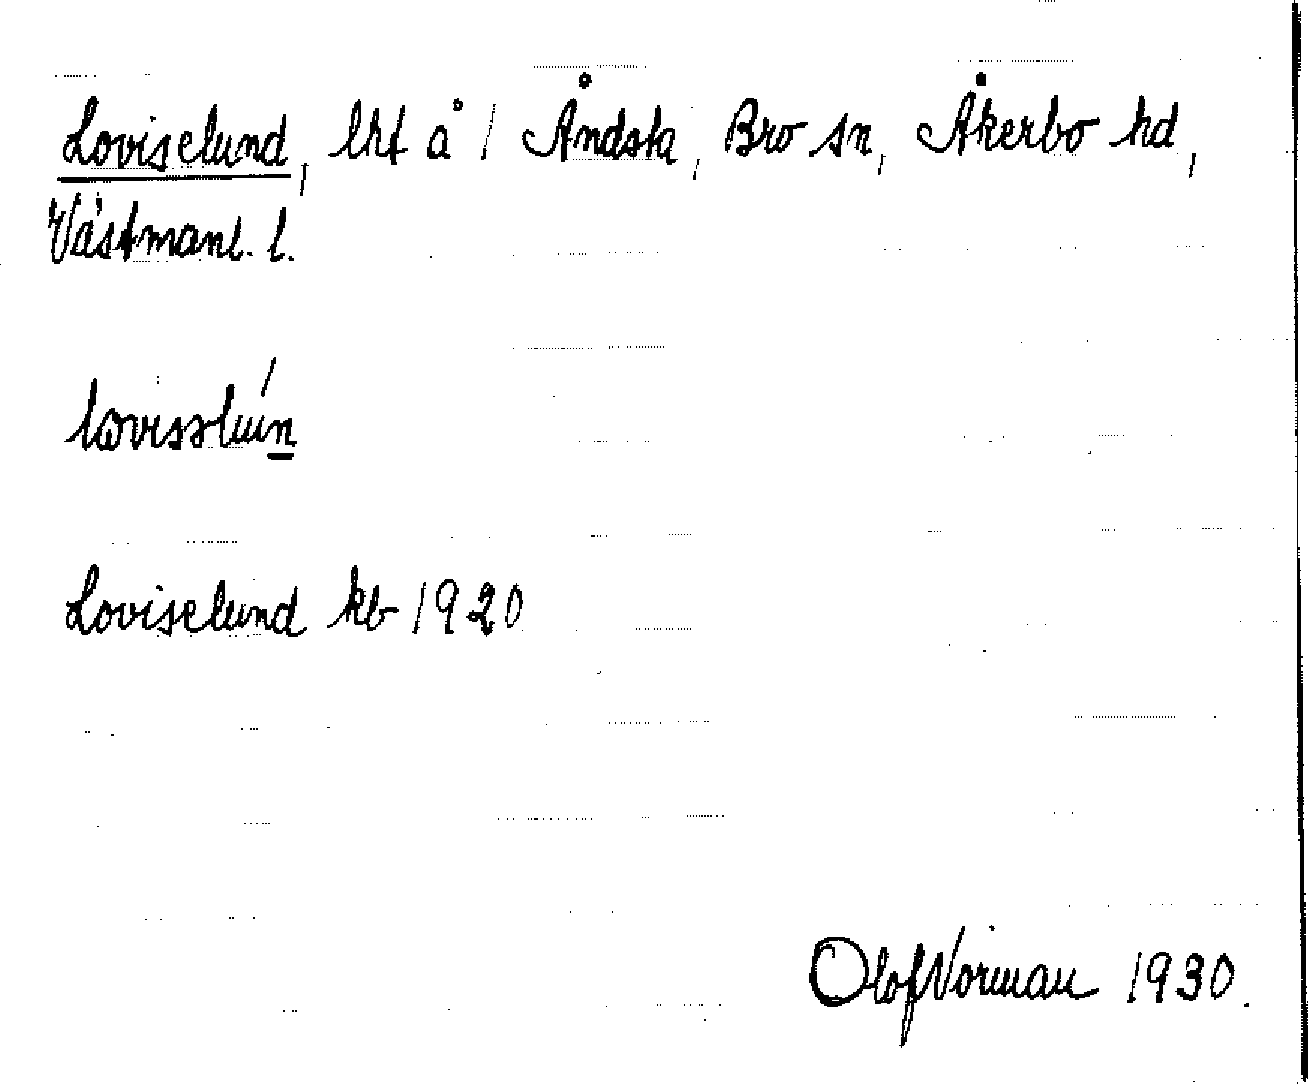 Loviselund, lht å 1 Åndsta, Bro sn, Åkerbo hd,
Västmanl. l.
Loviselund kb 1920
Olof Norman 1930.